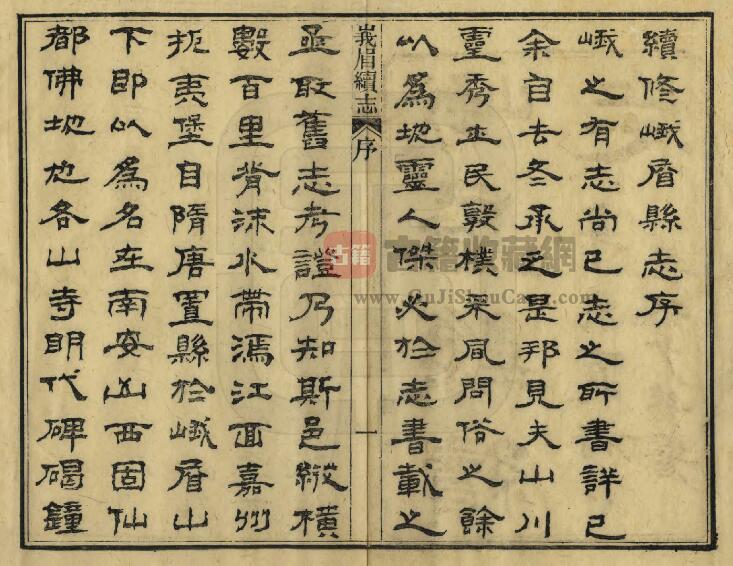 續修峨眉縣志序
峨之有志尚已志之所書詳已
余自去冬承乏是邦見夫山川
靈秀士民敦樸采風問俗之餘
以爲地靈人傑必於志書載之
峩眉續志 序 一
亟取舊志考證乃知斯邑縱橫
數百里背沫水帶濄江面嘉州
扼夷堡自隋唐置縣於峨眉山
下即以爲名在南安山西固仙
都佛地也各山寺明代碑碣鐘
古籍 古籍收藏網
www.GuJiShouCang.com